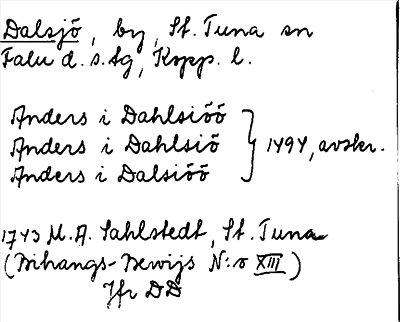 Dalsjö, by, St. Tuna sn
Falu d. s. tg, Kopp. l.
Anders i Dahlsiöö
Anders i Dahlsiö } 1494, avskr.
Anders i Dalsiöö
1743 M. A. Sahlstedt, St. Tuna
(Bihangs-Bewijs N:o XIII)
Jfr DD